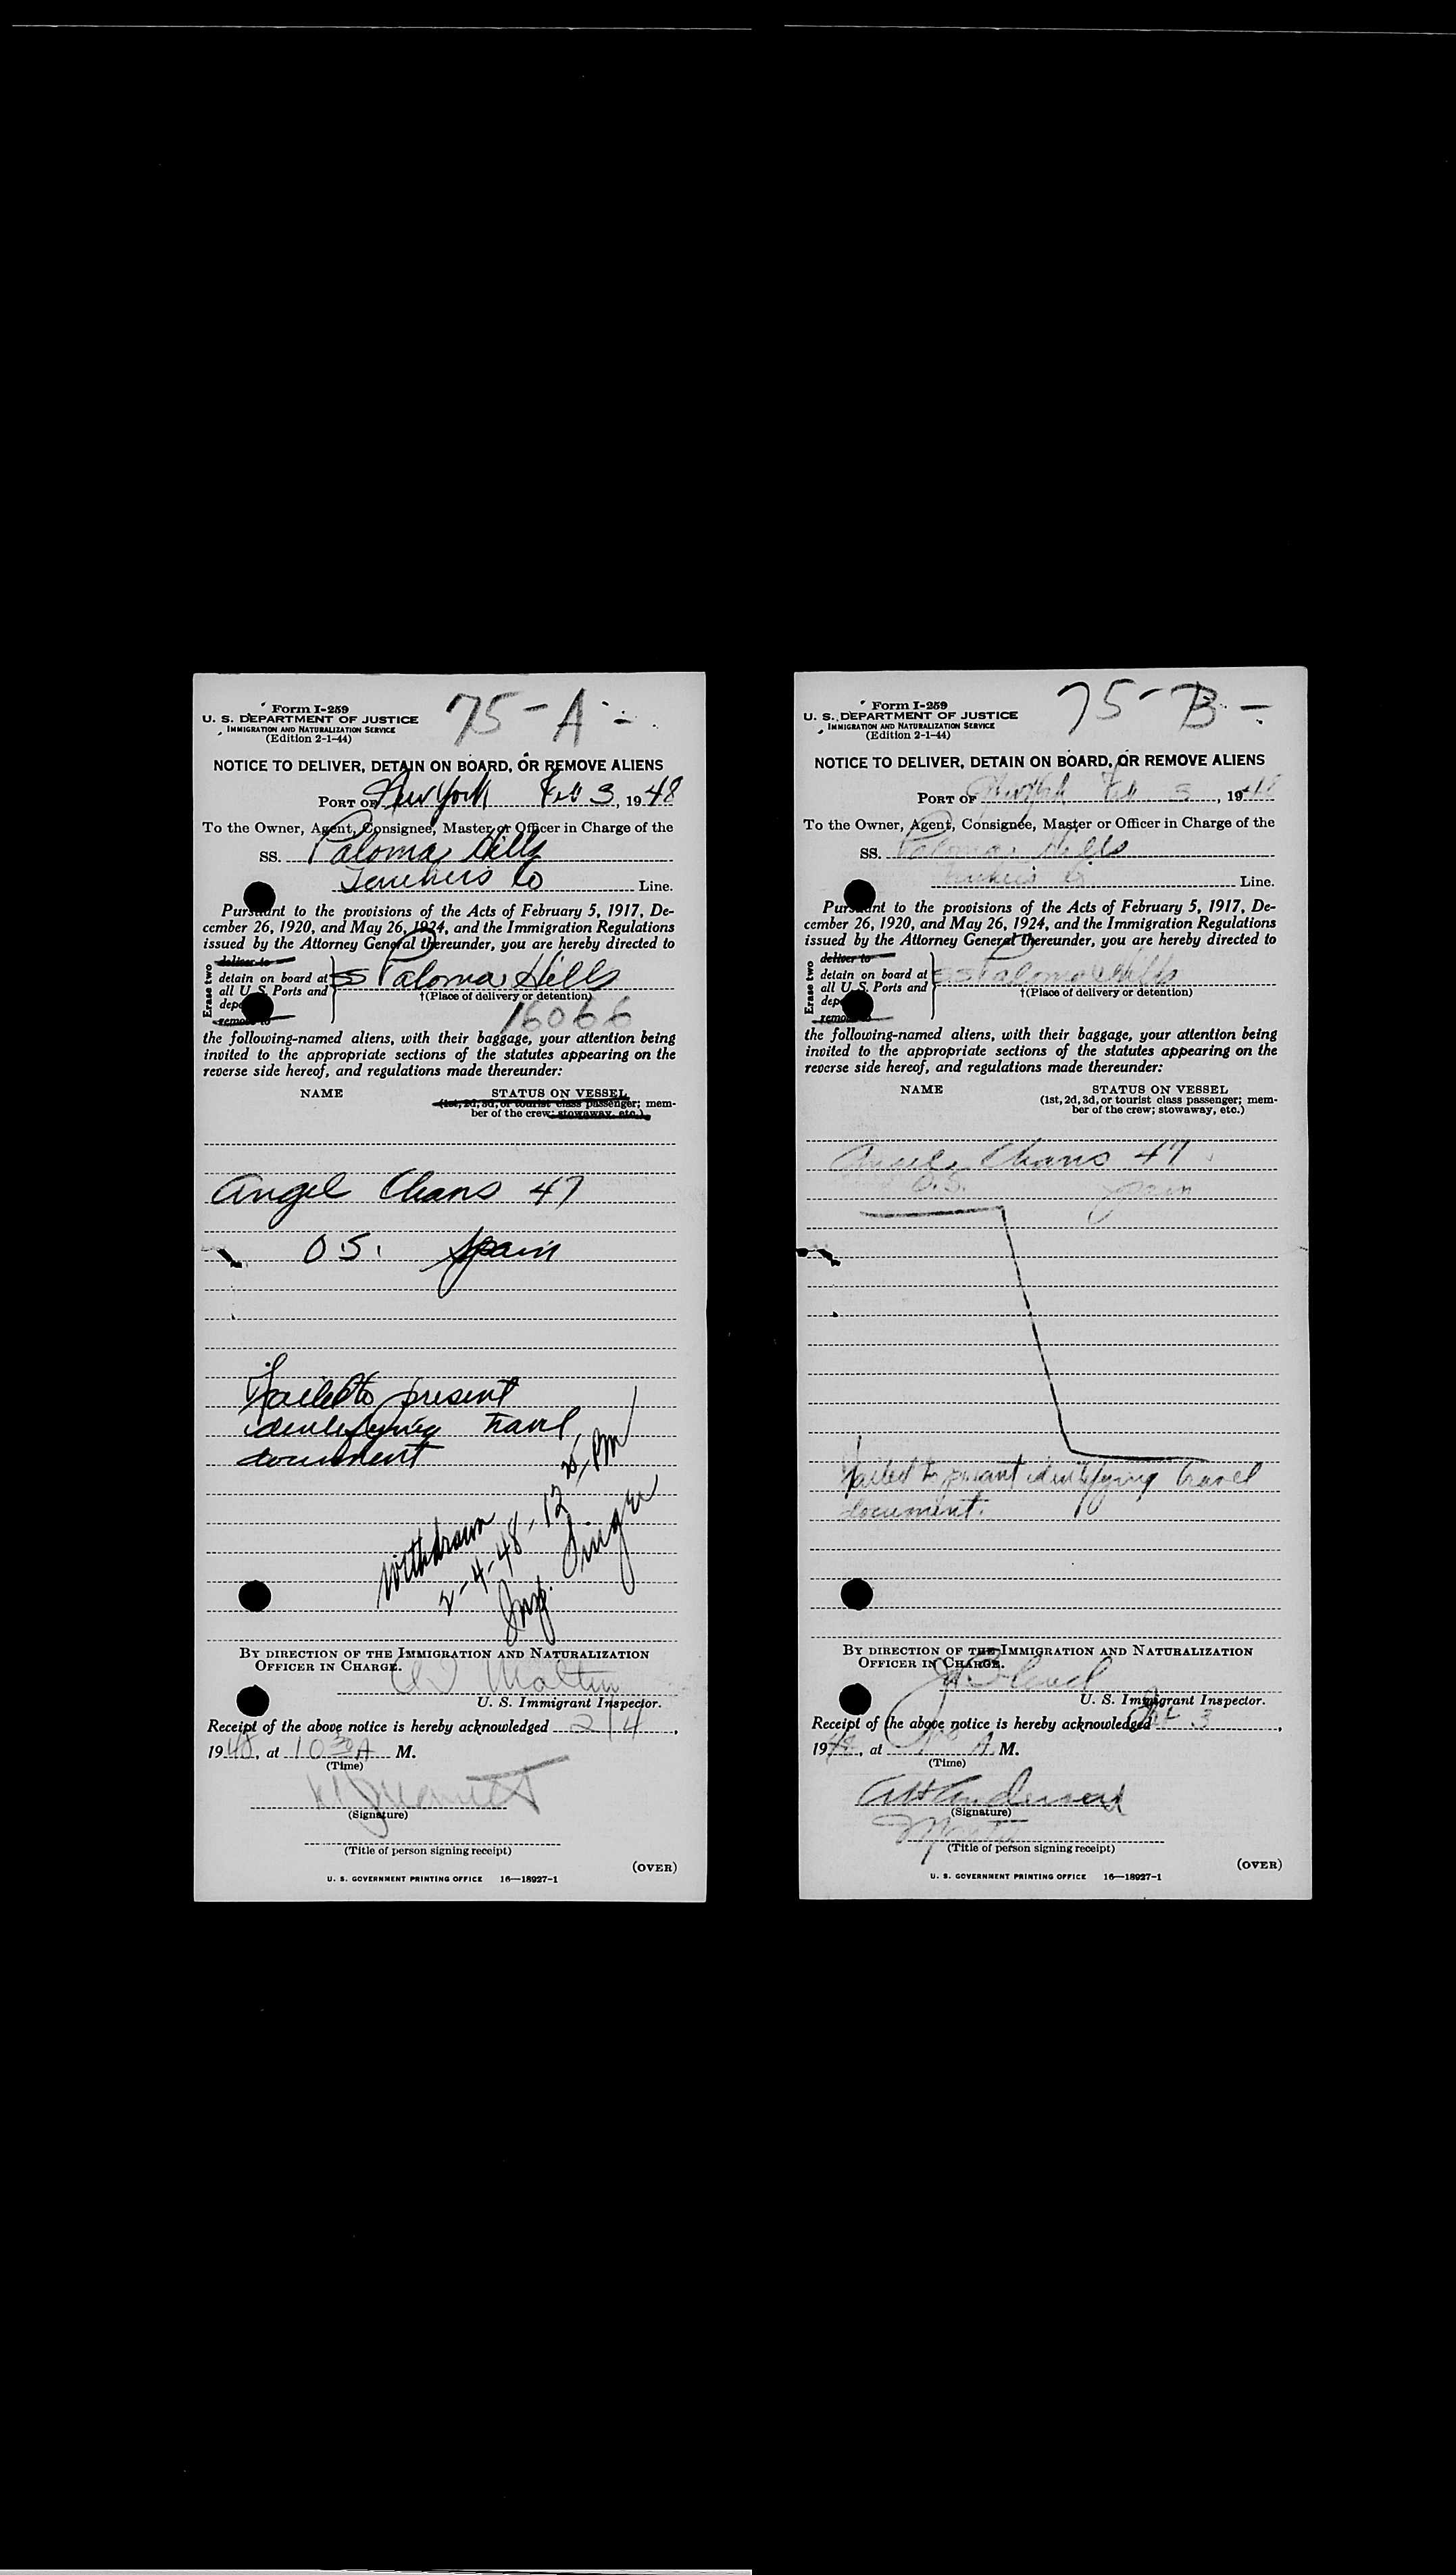 75-A
Form I-259
U. S. DEPARTMENT OF JUSTICE
IMMIGRATION AND NATURALIZATION SERVICE
(Edition 2-1-44)
NOTICE TO DELIVER, DETAIN ON BOARD, OR REMOVE ALIENS
PORT OF New York Feb 3, 1948
To the Owner, Agent, Consignee, Master or Officer in Charge of the
SS. Paloma Hills
Tankers Co Line.
Pursuant to the provisions of the Acts of February 5, 1917, De-
cember 26, 1920, and May 26, 1924, and the Immigration Regulations
issued by the Attorney General thereunder, you are hereby directed to
Erase two
deliver to
detain on board at
all U. S. Ports and
remove to
SS Paloma Hills
†(Place of delivery or detention)
16066
the following-named aliens, with their baggage, your attention being
invited to the appropriate sections of the statutes appearing on the
reverse side hereof, and regulations made thereunder:
NAME STATUS ON VESSEL
(1st, 2d, 3d, or tourist class passenger; mem-
ber of the crew; stowaway, etc.)
Angel Chans 47
O.S. Spain
Failed to present
identifying travel
document
withdrawn
2-4-48-12 25 PM
Insp. Singer
BY DIRECTION OF THE IMMIGRATION AND NATURALIZATION
OFFICER IN CHARGE.
U. S. Immigrant Inspector.
Receipt of the above notice is hereby acknowledged 2/4,
1948, at 10 30 A M.
(Time)
(Signature)
(Title of person signing receipt)
(OVER)
U. S. GOVERNMENT PRINTING OFFICE 16—18927-1
75-B-
Form I-259
U. S. DEPARTMENT OF JUSTICE
IMMIGRATION AND NATURALIZATION SERVICE
(Edition 2-1-44)
NOTICE TO DELIVER, DETAIN ON BOARD, OR REMOVE ALIENS
PORT OF New York Feb 3, 1948
To the Owner, Agent, Consignee, Master or Officer in Charge of the
SS. Paloma Hills
Tankers Co Line.
Pursuant to the provisions of the Acts of February 5, 1917, De-
cember 26, 1920, and May 26, 1924, and the Immigration Regulations
issued by the Attorney General thereunder, you are hereby directed to
Erase two
deliver to
detain on board at
all U. S. Ports and
remove to
SS Paloma Hills
†(Place of delivery or detention)
the following-named aliens, with their baggage, your attention being
invited to the appropriate sections of the statutes appearing on the
reverse side hereof, and regulations made thereunder:
NAME STATUS ON VESSEL
(1st, 2d, 3d, or tourist class passenger; mem-
ber of the crew; stowaway, etc.)
Angel Chans 47
O.S. Spain
Failed to present identifying travel
document.
BY DIRECTION OF THE IMMIGRATION AND NATURALIZATION
OFFICER IN CHARGE.
U. S. Immigrant Inspector.
Receipt of the above notice is hereby acknowledged Feb 3,
1948, at A. M.
(Time)
Anderson
(Signature)
(Title of person signing receipt)
(OVER)
U. S. GOVERNMENT PRINTING OFFICE 16—18927-1